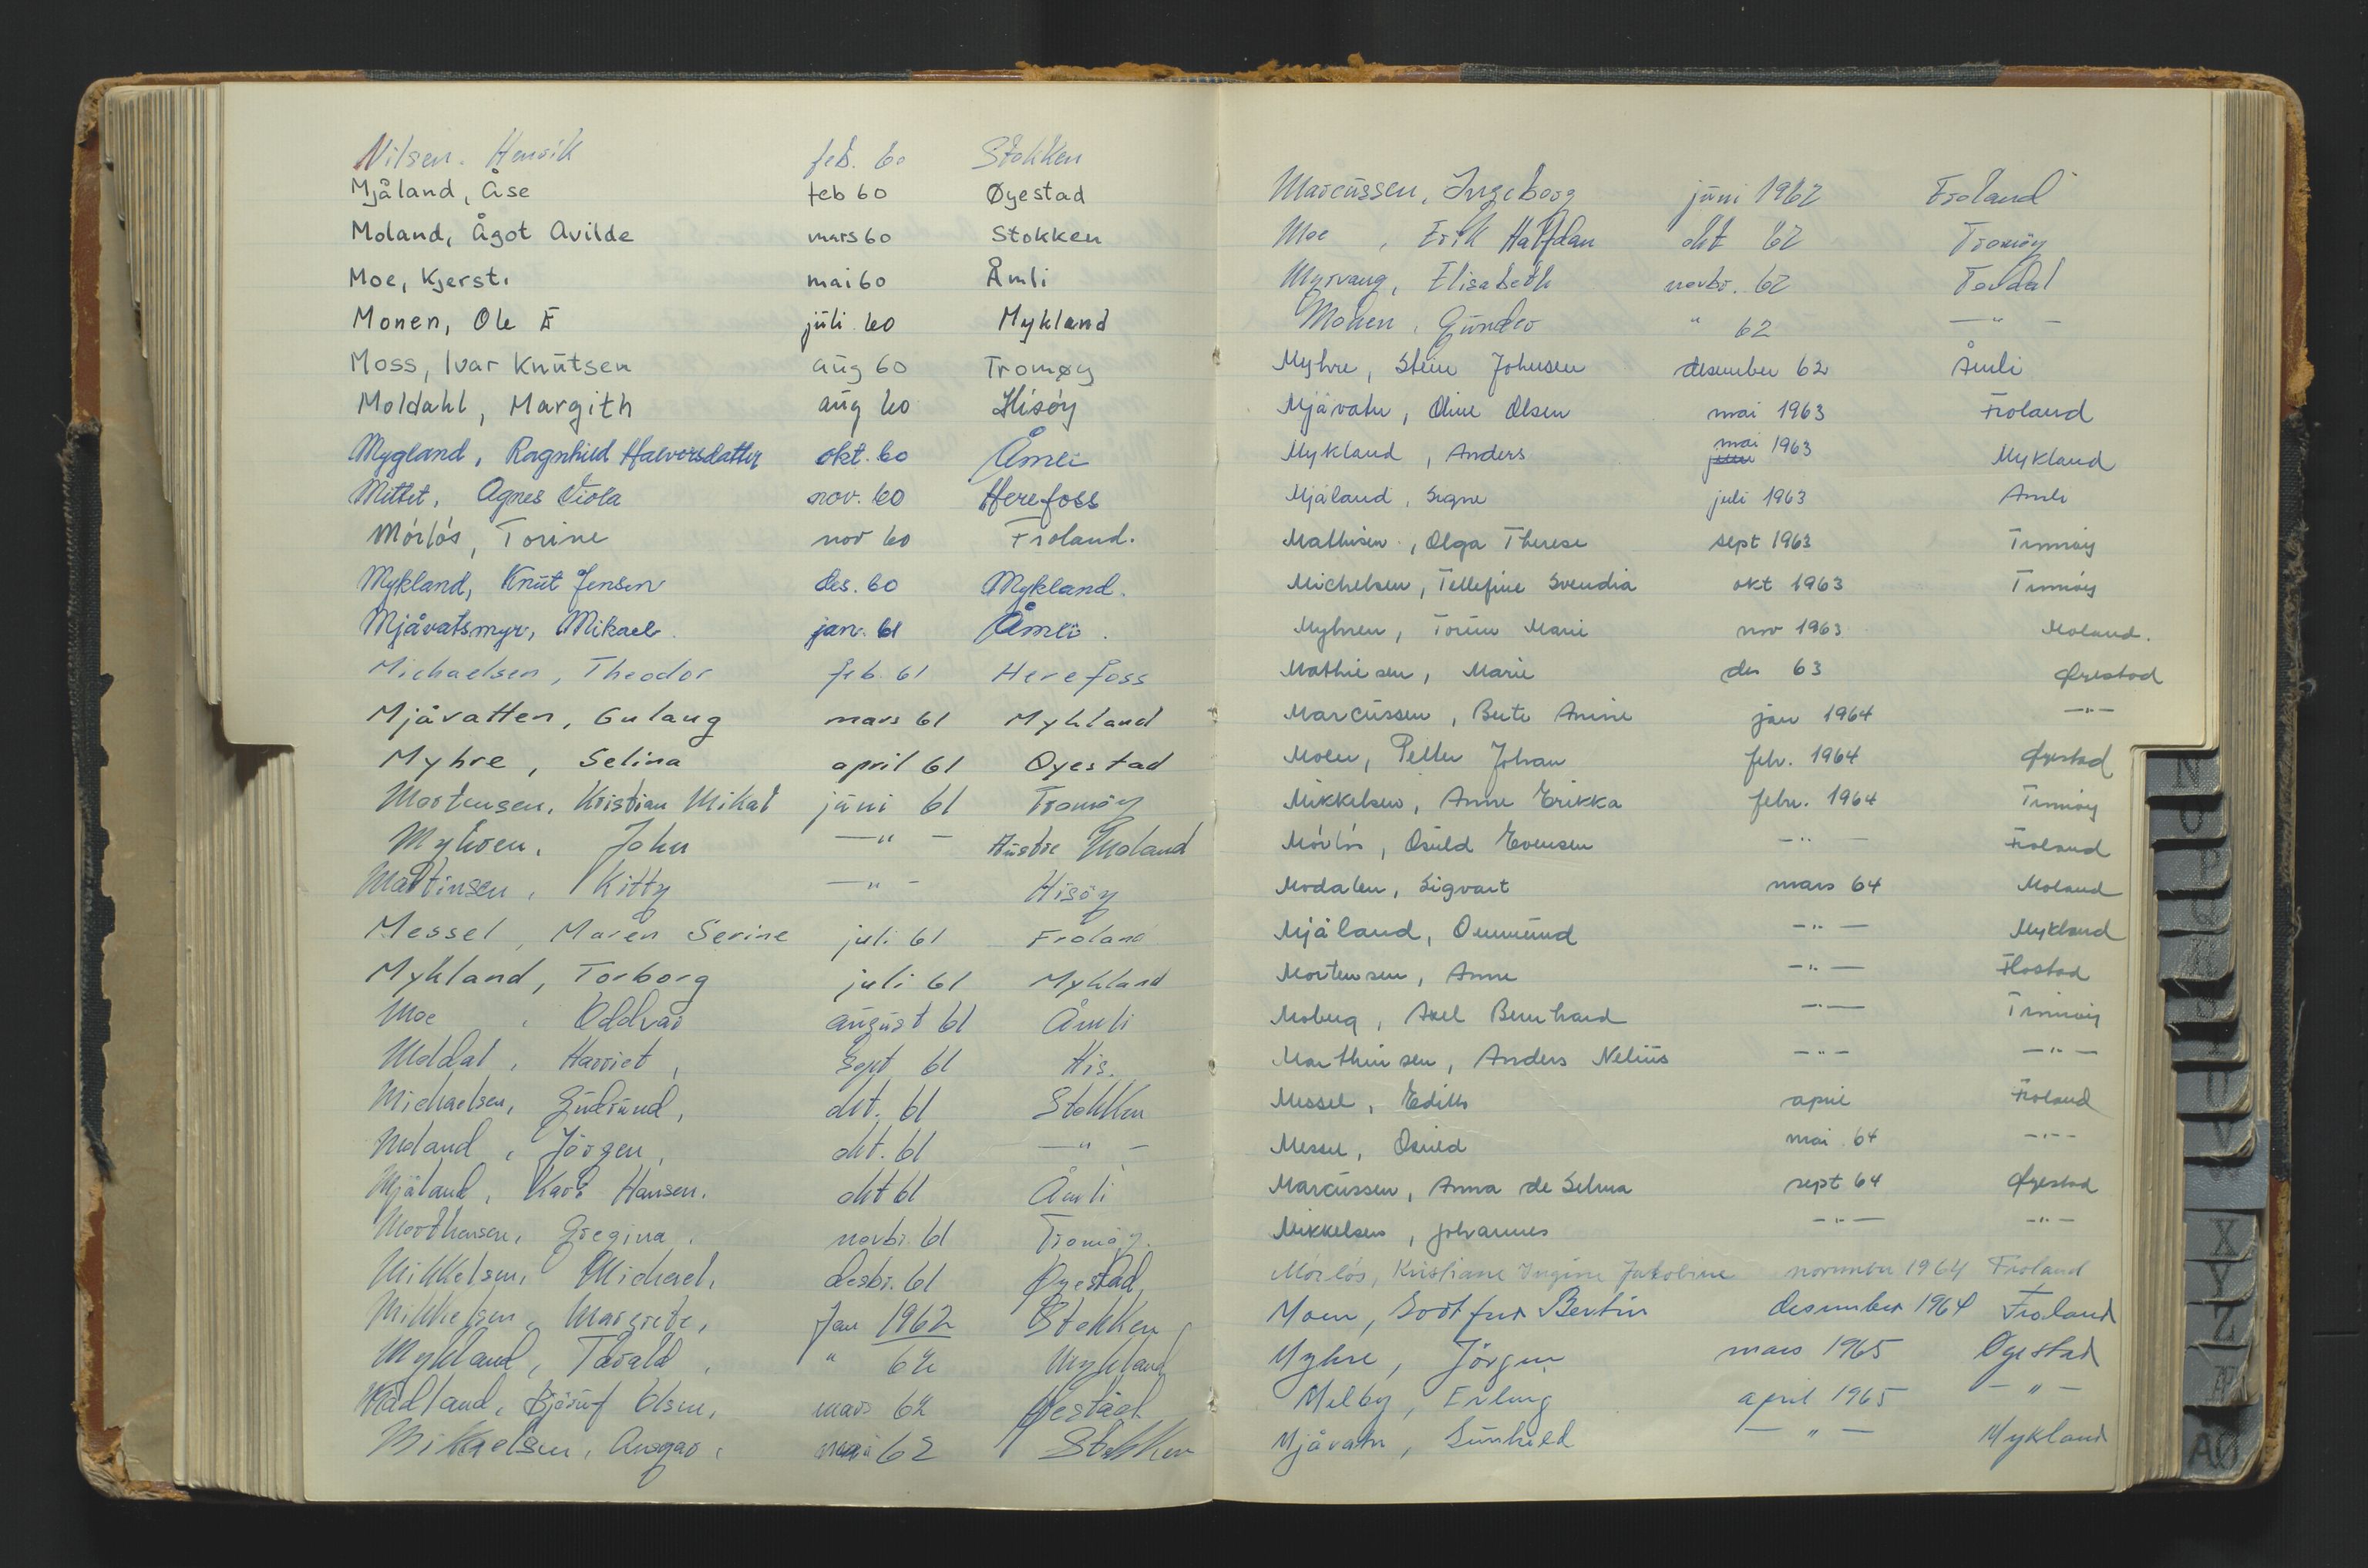 Nilsen. Henrik feb. 60 Stokken
Mjåland, Åse feb 60 Øyestad
Moland, Ågot Avilde mars 60 Stokken
Moe, Kjersti mai 60 Åmli
Monen, Ole juli. 60 Mykland
Moss, Ivar Knutsen aug 60 Tromøy
Moldahl, Margith aug 60 Hisöy
Mygland, Ragnhild Halvorsdatter okt. 60 Åmli
Mittet, Agnes Viola nov. 60 Herefoss
Mörlös, Torine nov 60 Froland.
Mykland, Knut Jensen des. 60 Mykland.
Mjåvatsmyr, Mikael. jan. 61 Åmli.
Michaelsen, Theodor feb. 61 Herefoss
Mjåvatten, Gulaug mars 61 Mykland
Myhre, Selina april 61 Öyestad
Mortensen, Kristian Mikal juni 61 Tromöy
Myhren, John —"— Austre Moland
Martinsen, Kitty —"— Hisöy
Messel, Maren Serine juli 61 Froland
Mykland, Torborg juli 61 Mykland
Moe, Oddvar august 61 Åmli
Moldal, Harriet, Sept 61 His.
Michaelsen, Gudrund, okt. 61 Stokken
Moland, Jörgen, okt. 61 —"—
Mjåland, Kari Hansen. okt 61 Åmli
Morthensen, Gregina. novbr. 61 Tromöy.
Mikkelsen, Michael, desbr. 61 Øyestad
Mikkelsen, Margrete, Jan 1962 Stokken
Mykland, Tarald, " 62 Mykland
Olsen, mars 62 Øyestad
Mikaelsen, Ansgar, mai 62 Stokken
Marcussen, Ingeborg juni 1962 Froland
Moe, Erik Halfdan okt 62 Tromöy
Myrvang, Elisabeth novbr. 62 Tovdal
Monen, Gunder " 62 —"—
Myhre, Stine Johnsen desember 62 Åmli
Mjåvatn, Oline Olsen mai 1963 Froland
Mykland, Anders mai 1963 Mykland
Mjåland, Signe juli 1963 Amli
Mathisen, Olga Therese sept 1963 Tromöy
Michelsen, Tellefine Svendia okt 1963 Tromöy
Myhren, Torine Marie nov 1963 Moland.
Mathiesen, Marie des 63 Øyestad
Marcussen, Berte Anine jan 1964 —"—
Moen, Petter Johan febr. 1964 Øyestad
Mikkelsen, Anne Erikka febr. 1964 Tromöy
Mörlös, Osuld Evensen —"— Froland
Modalen, Sigvart mars 64 Moland
Mjåland, Ommund —"— Mykland
Mortensen, Anne —"— Flostad
Moberg, Axel Bernhard —"— Tromöy
Marthinsen, Anders Nelius —"— —"—
Messel, Edith april Froland
Messel, Osuld mai 64 —"—
Marcussen, Anna de Selma sept 64 Øyestad
Mikkelsen, Johannes —"— —"—
Mörlös, Kristiane Ingine Jakobine november 1964 Froland
Moen, Bertin desember 1964 Froland
Myhre, Jörgen mars 1965 Øyestad
Melby, Erling april 1965 —"—
Mjåvatn, Gunhild —"— Mykland
N
O
P
R
U
V
X
Y
Z
Æ
AÅ